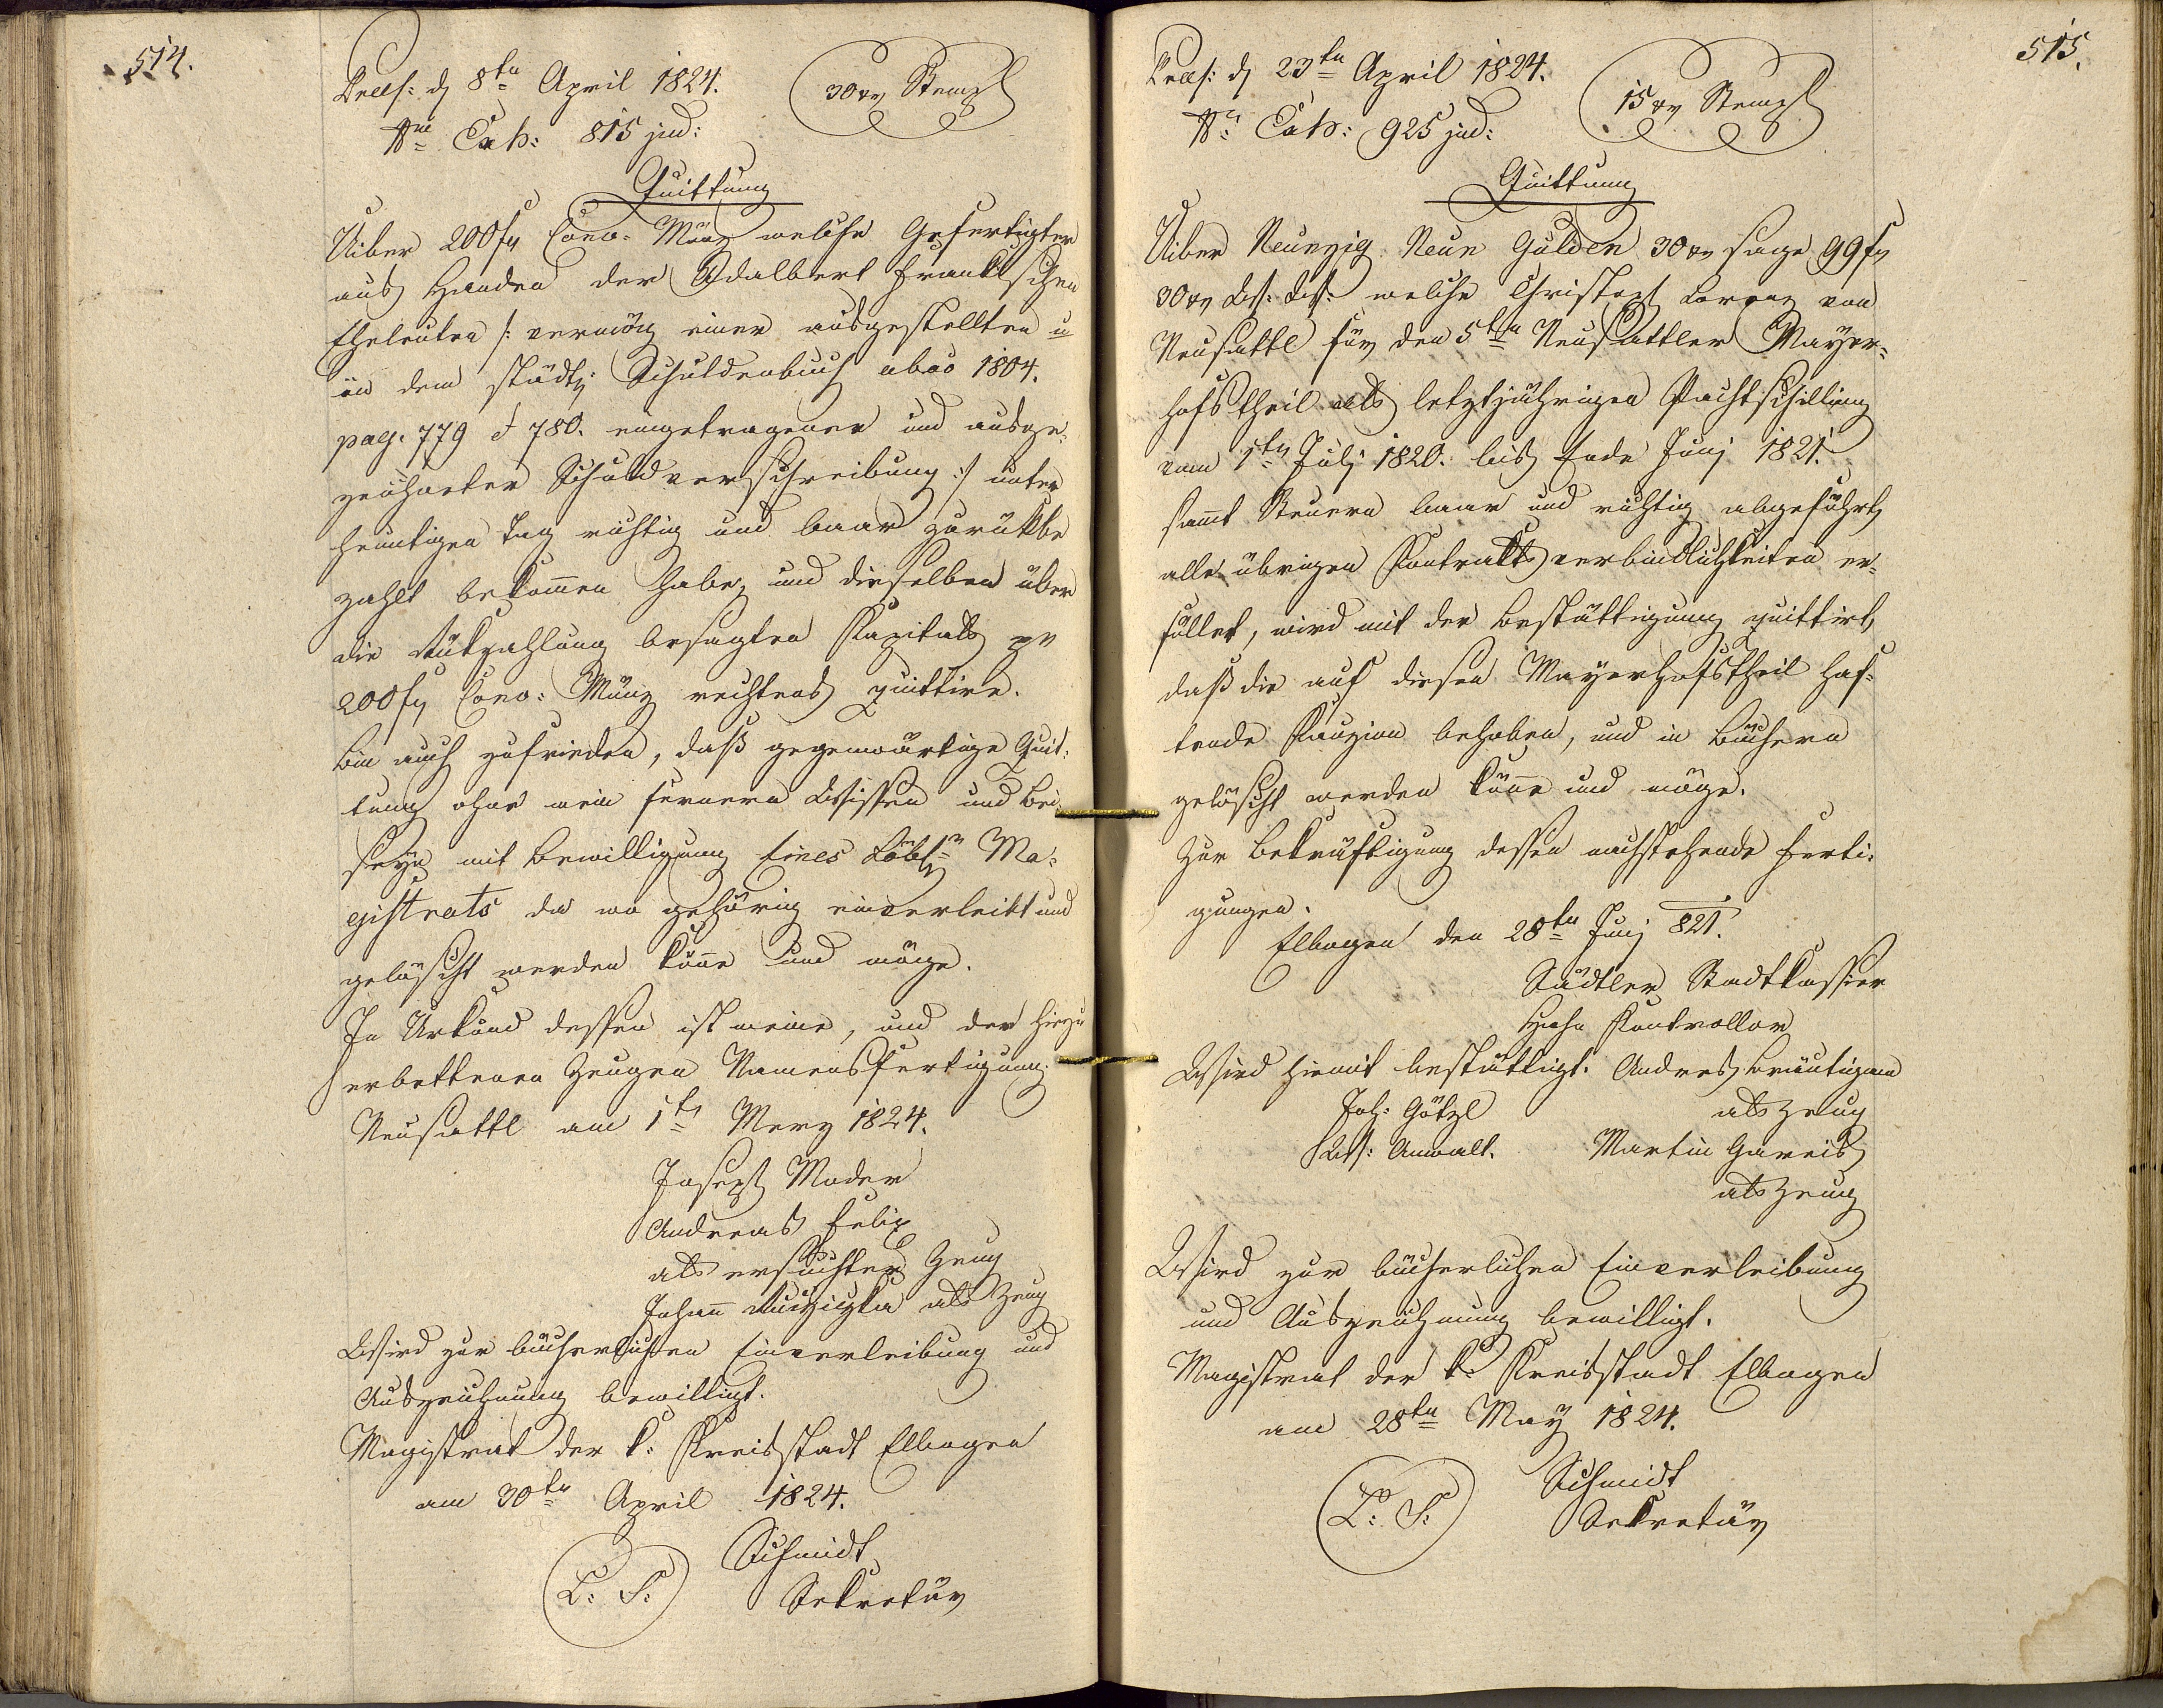 514.
Praes: d 8ten April 1824.
30 xr Stempl
Nro Exh: 815 jud:
Quittung
Uiber 200 fl Conv: Münz welche Gefertigter
aus Handen der Adalbert Franklschen
Eheleuten /: vermög einer ausgestellten u
in dem städt: Schuldenbuch abao 1804.
pag. 779 et 780. eingetragener und ausge-
zeichneter Schuldverschreibung :/ unter
heuntigen Tag richtig und baar zurükbe
zahlt bekomen habe, und dieselben über
die Rükzahlung besagten Kapitals pr
200 fl Conv: Münz rechtens quittire.
Bin auch zufrieden, daß gegenwärtige Quit-
tung ohne mein fernern Wissen und Bei
seyn mit Bewilligung Eines Löbl: Ma-
gistrats da wo gehörig einverleibt und
gelöscht werden köne und möge.
In Urkund dessen ist meine, und der hiezu
erbettenen Zeugen Namensfertigung.
Neusattl am 1ten Merz 1824.
Joseph Moder
Andreas Felix
als ersuchter Zeug
Johann Ruziczka als Zeug
Wird zur bücherlichen Einverleibung und
Auszeichnung bewilligt.
Magistrat der k: Kreisstadt Elbogen
am 30ten April 1824.
L: S:
Schmidt
Sekretär
515.
Praes: d 23ten April 1824.
15 xr Stempl
Nro Exh: 925 jud:
Quittung
Uiber Neunzig Neun Gulden 30 xr sage 99 fl
30 xr W: W: welche Christoph Lorenz von
Neusattl für den 5ten Neusattler Mayer-
hofstheil als letztjährigen Pachtschilling
vom 1ten Julj 1820. bis Ende Junj 1821.
samt Steuern baar und richtig abgeführt,
alle übrigen Kontraktsverbindlichkeiten er-
füllet, wird mit der Bestättigung quittirt,
daß die auf diesen Mayerhofstheil haf-
tende Kauzion behoben, und in Büchern
gelöscht werden köne und möge.
Zur Bekräftigung dessen nachstehende Ferti-
gungen.
Elbogen den 28ten Junj 821.
Städtler Stadtkassier
Hahn Kontrollor
Wird hiemit bestättigt. Andreas Bräutigam
Joh: Götzl als Zeug
W: Anwalt. Martin Gareis
als Zeug
Wird zur bücherlichen Einverleibung
und Auszeichnung bewilligt.
Magistrat der k: Kreisstadt Elbogen
am 28ten May 1824.
L: S:
Schmidt
Sekretär